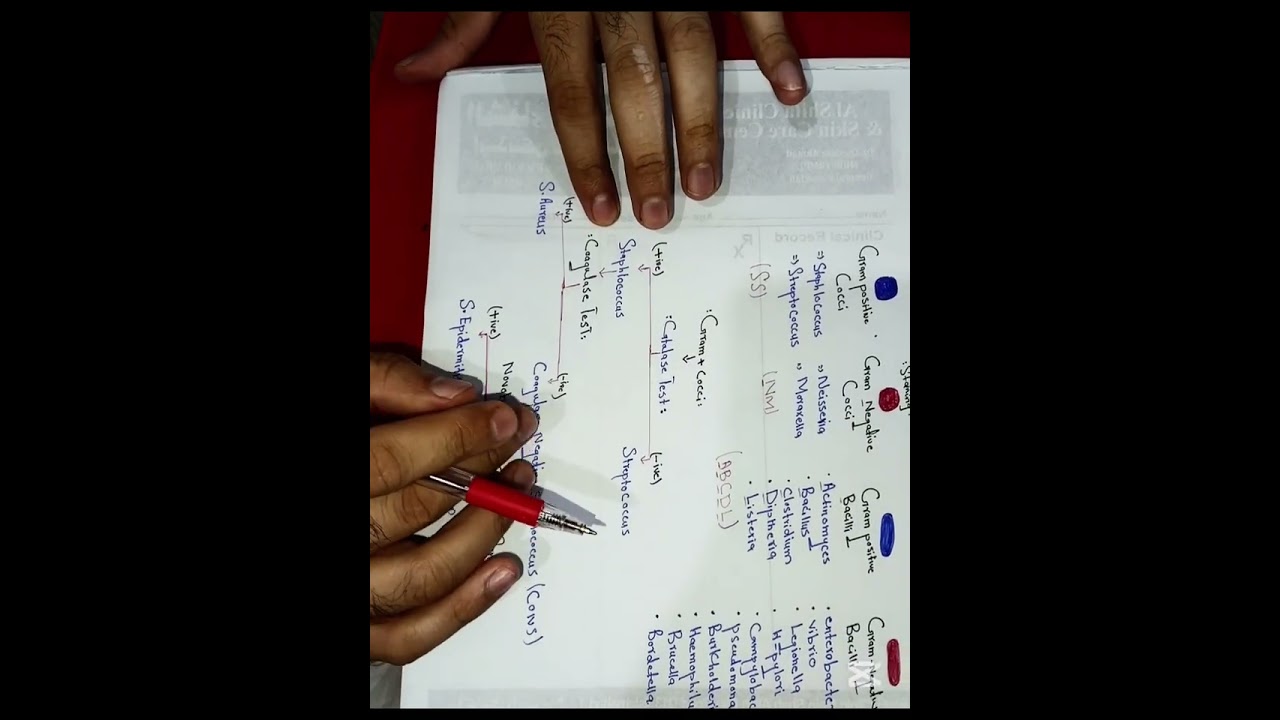 :Staining
Gram positive
Cocci
⇒ Staphlococcus
⇒ Streptococcus
(SS)
Gram Negative
Cocci
⇒ Neisseria
⇒ Moraxella
(NM)
Gram positive
Bacilli
• Actinomyces
• Bacillus
• Clostridium
• Diptheria
• Listeria
(ABCDL)
Gram
Bacilli
• enterobacte
• vibrio
• Legionella
• H-pylori
• Campylobac
• pseudomona
• Burkholderi
• Haemophilu
• Brucella
• Bordetella
:Gram + Cocci:
:Catalase Test:
(+ive) (-ive)
Staphlococcus Streptococcus
:Coagulase Test:
(+ive) (-ive)
S. Aureus
Negati ococcus (CONS)
Novob
(+ive)
S. Epidermiti
Al Shifa Clinic
& Skin Care Cen
Name
Age
Clinical Record
Rx